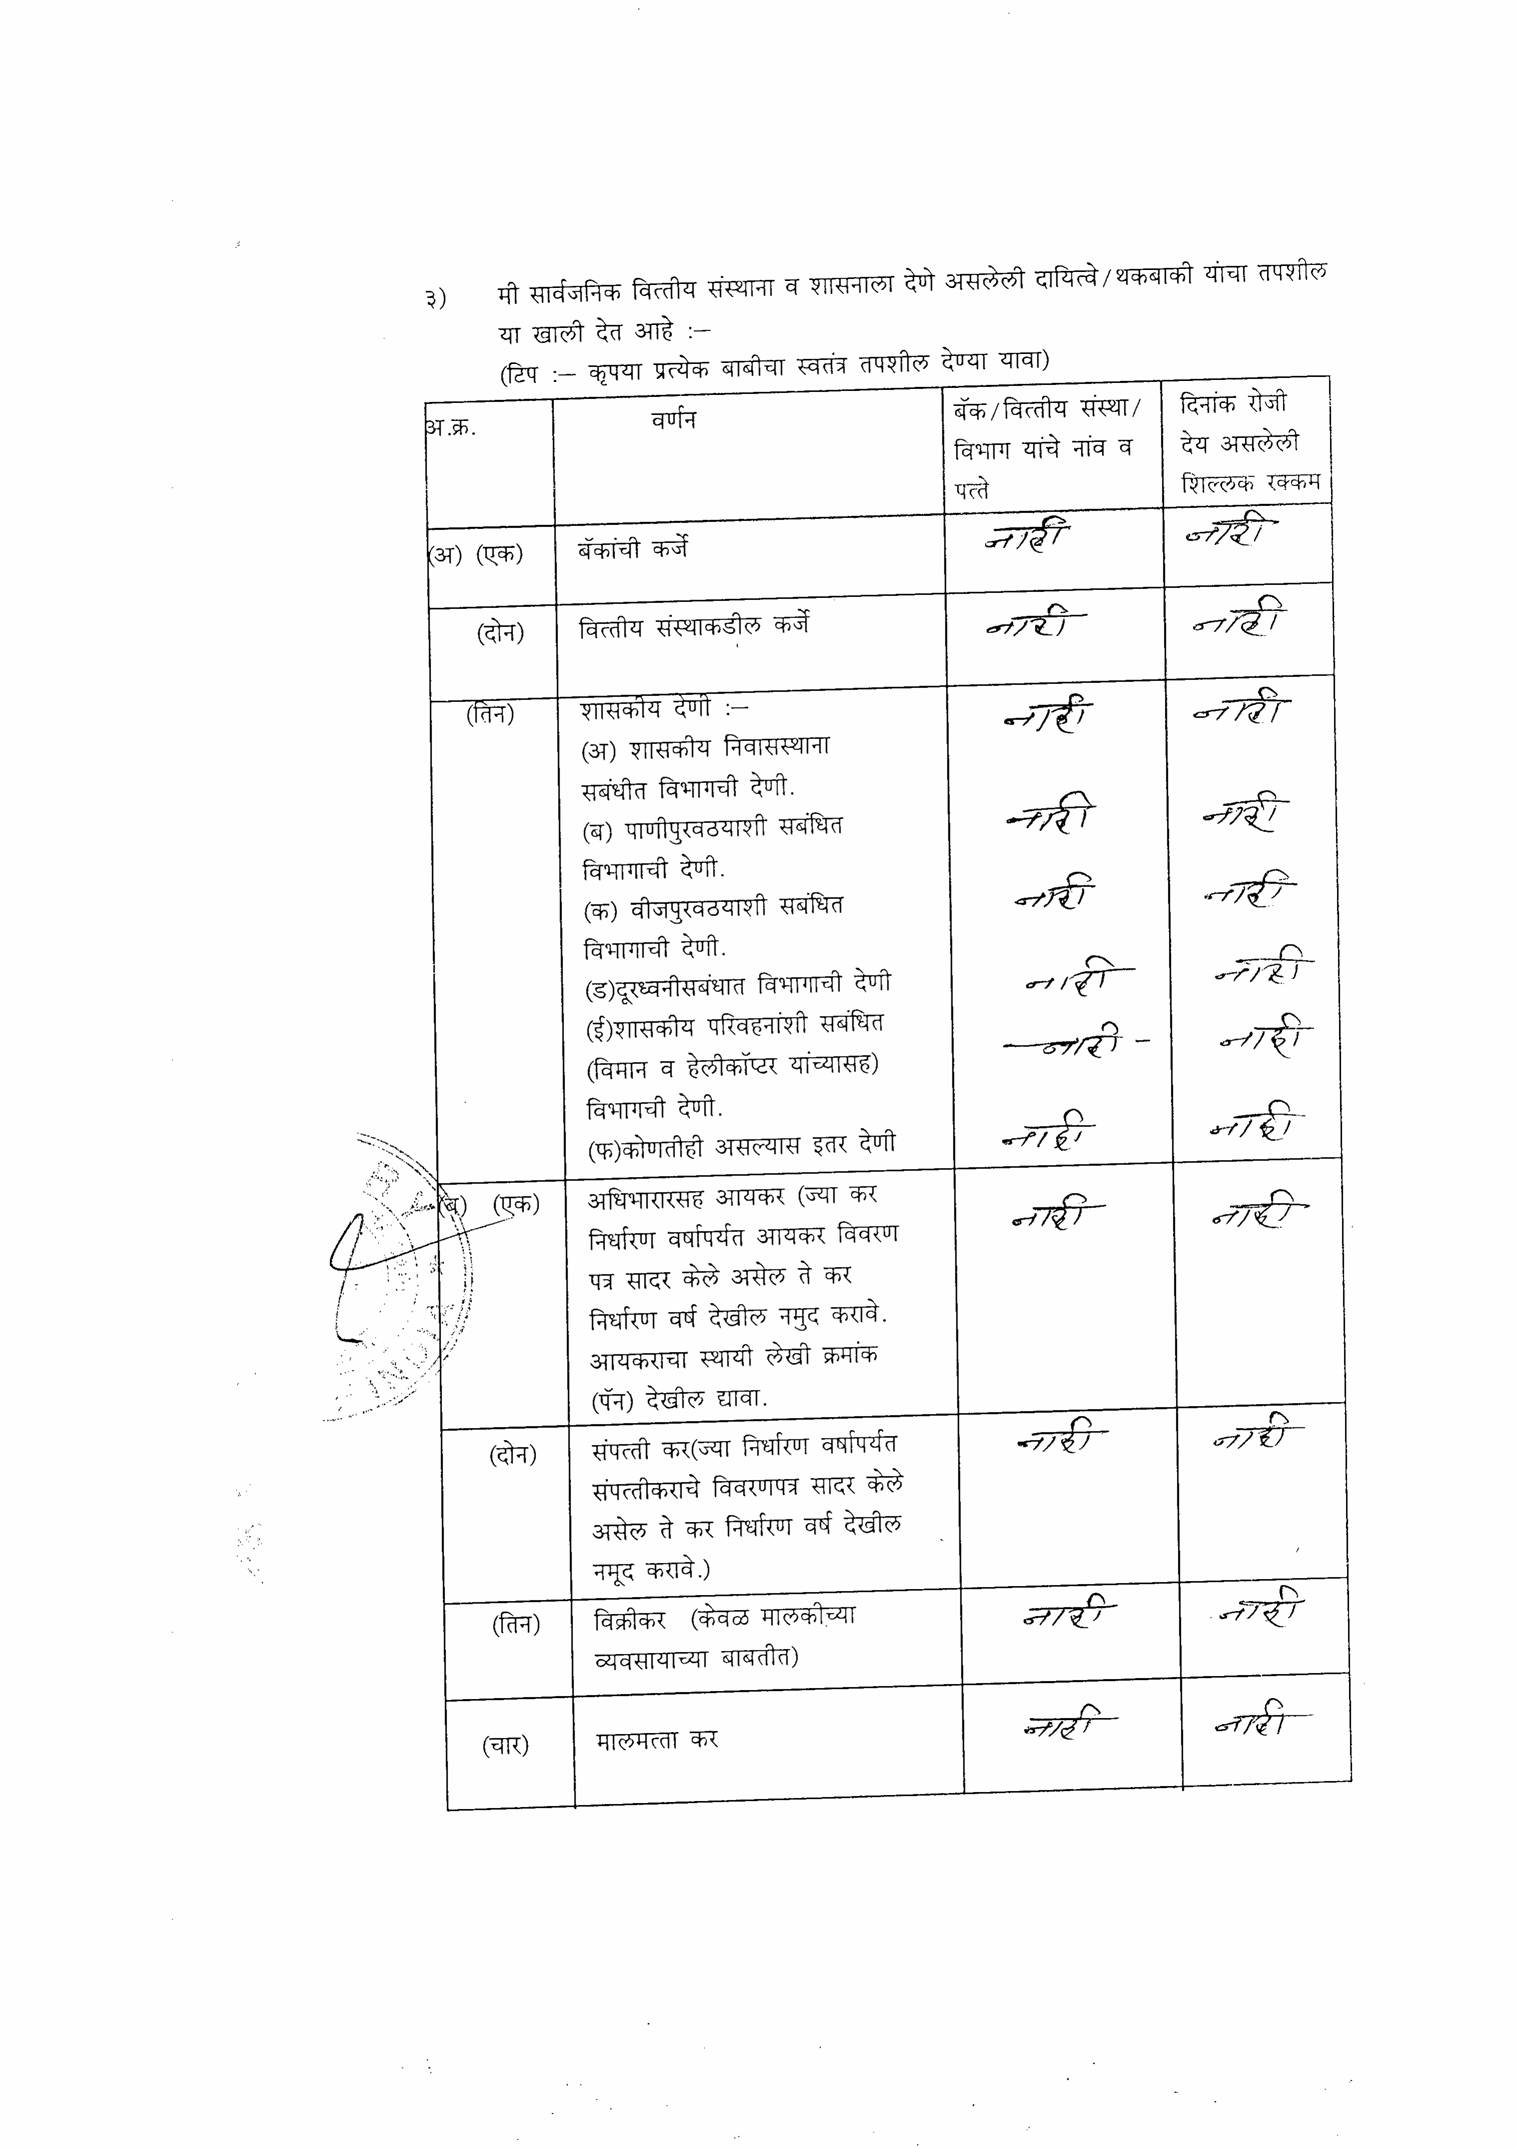 ३) मी सार्वजनिक वित्तीय संस्थाना व शासनाला देणे असलेली दायित्वे/थकबाकी यांचा तपशील
या खाली देत आहे :–
(टिप :– कृपया प्रत्येक बाबीचा स्वतंत्र तपशील देण्या यावा)
अ.क्र. वर्णन बॅक/वित्तीय संस्था/ दिनांक रोजी
विभाग यांचे नांव व देय असलेली
पत्ते शिल्लक रक्कम
(अ) (एक) बॅकांची कर्जे नाही नाही
(दोन) वित्तीय संस्थाकडील कर्जे नाही नाही
(तिन) शासकीय देणी :– नाही नाही
(अ) शासकीय निवासस्थाना
सबंधीत विभागची देणी.
(ब) पाणीपुरवठयाशी सबंधित नाही नाही
विभागाची देणी.
(क) वीजपुरवठयाशी सबंधित नाही नाही
विभागाची देणी.
(ड)दूरध्वनीसबंधात विभागाची देणी नाही नाही
(ई)शासकीय परिवहनांशी सबंधित – नाही – नाही
(विमान व हेलीकॉप्टर यांच्यासह)
विभागची देणी.
(फ)कोणतीही असल्यास इतर देणी नाही नाही
(ब) (एक) अधिभारारसह आयकर (ज्या कर नाही नाही
निर्धारण वर्षापर्यत आयकर विवरण
पत्र सादर केले असेल ते कर
निर्धारण वर्ष देखील नमुद करावे.
आयकराचा स्थायी लेखी क्रमांक
(पॅन) देखील द्यावा.
INDIA
(दोन) संपत्ती कर(ज्या निर्धारण वर्षापर्यत नाही नाही
संपत्तीकराचे विवरणपत्र सादर केले
असेल ते कर निर्धारण वर्ष देखील
नमूद करावे.)
(तिन) विक्रीकर (केवळ मालकीच्या नाही नाही
व्यवसायाच्या बाबतीत)
(चार) मालमत्ता कर नाही नाही